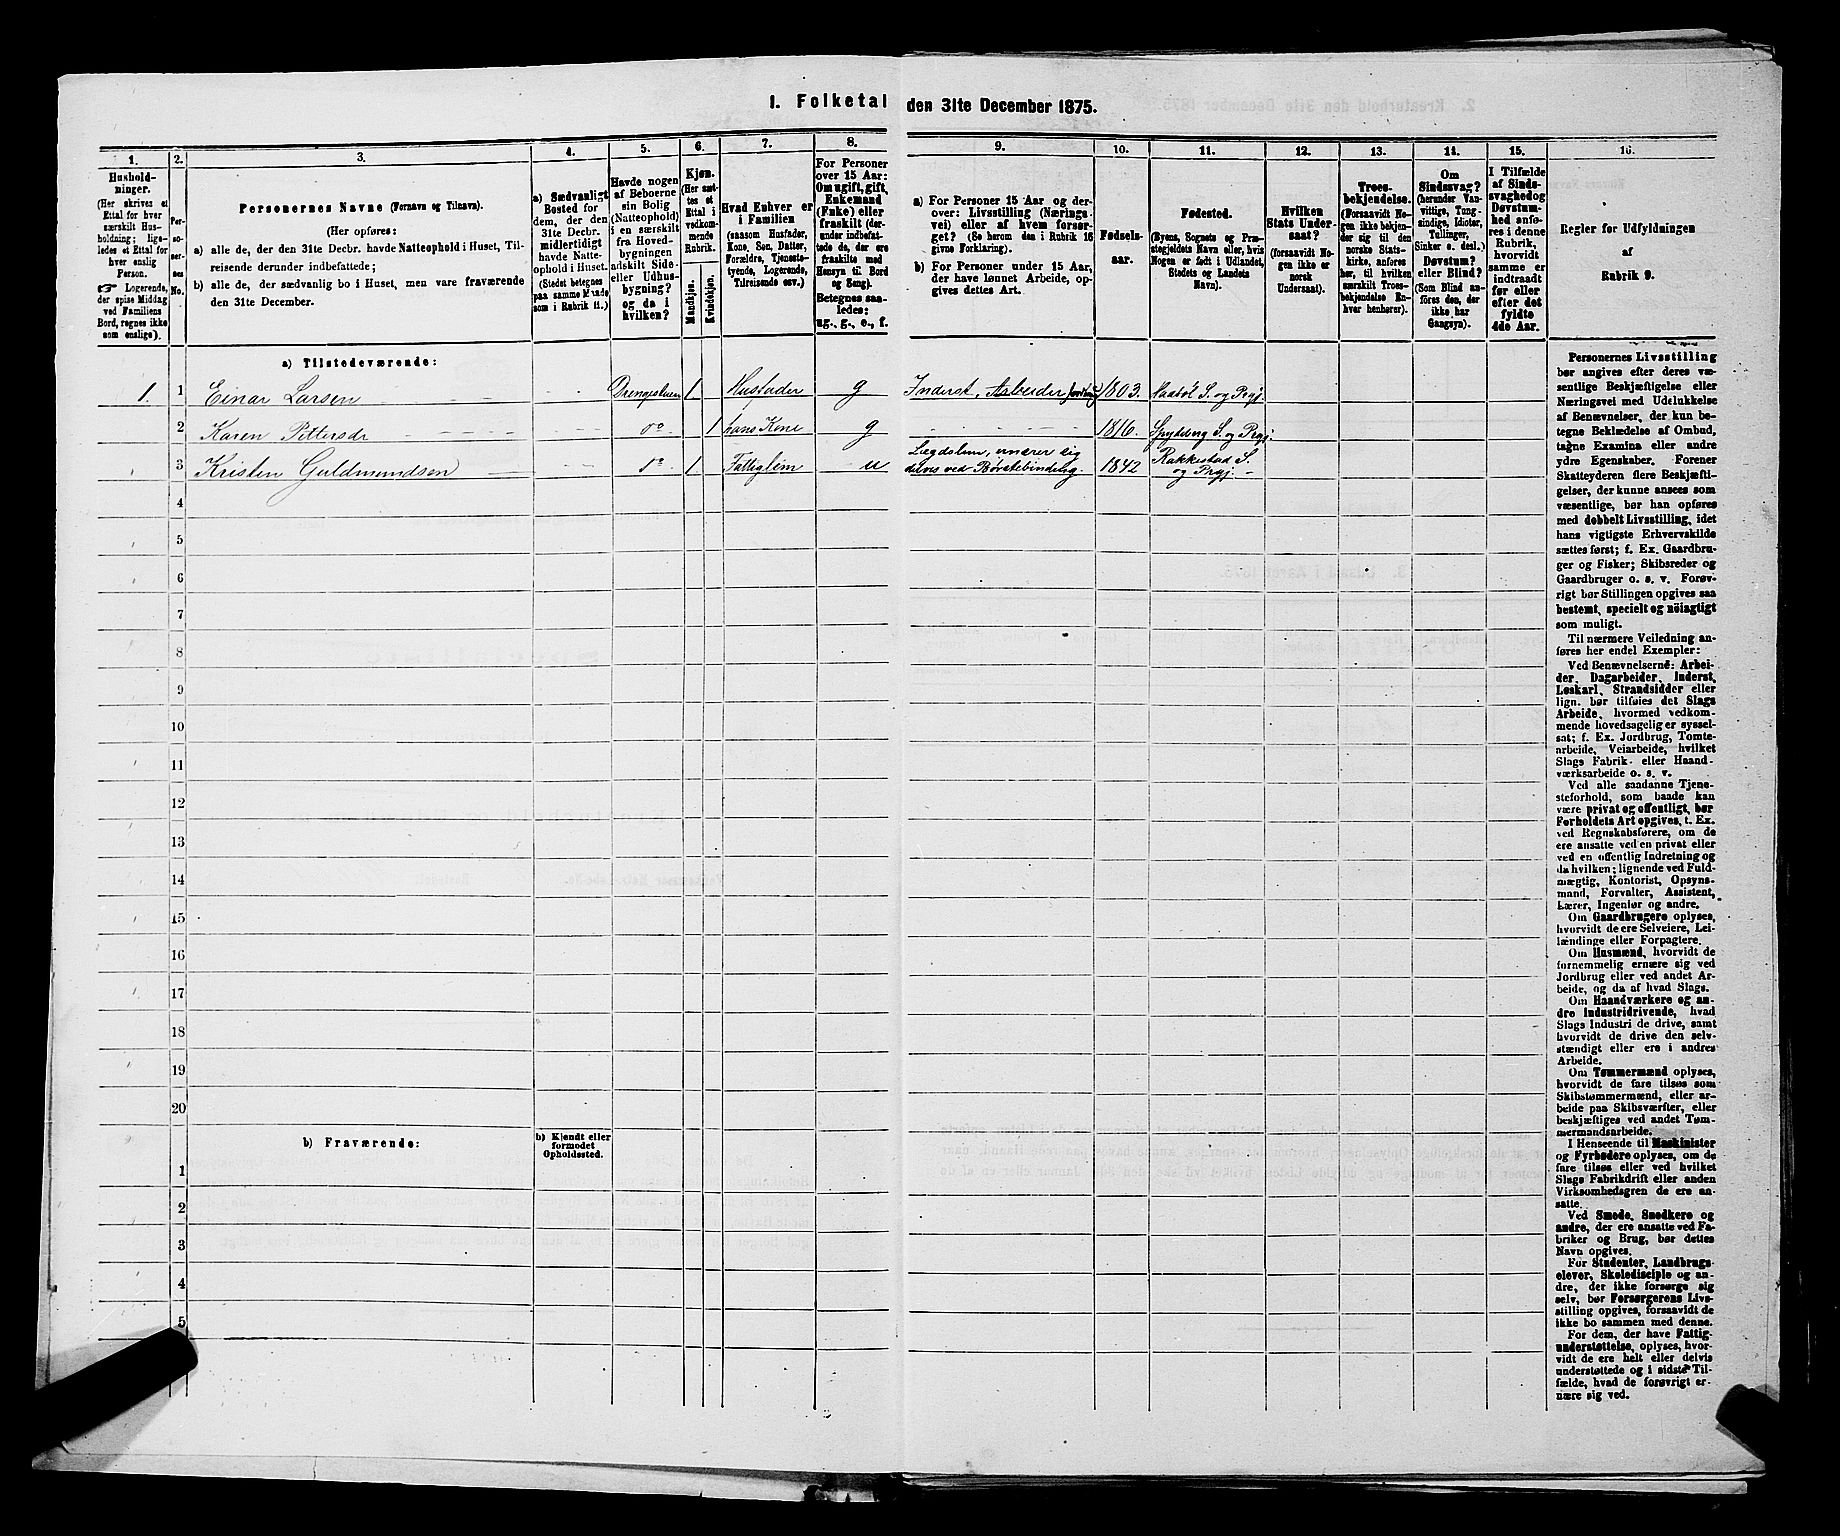 1. Folketal den 31te December 1875.
1.
2.
3.
4.
5.
6.
7.
8.
9.
10.
11.
12.
13.
14.
15.
16.
Hushold-
ninger.
(Her skrives et
Ettal for hver
særskilt Hus-
holdning; lige-
ledes et Ettal for
hver enslig
Person.
☞ Logerende,
der spise Middag
ved Familiens
Bord, regnes ikke
som enslige).
Per-
so-
ner-
nes
No.
Personernes Navne (Fornavn og Tilnavn).
(Her opføres:
a) alle de, der den 31te Decbr. havde Natteophold i Huset, Til-
reisende derunder indbefattede;
b) alle de, der sædvanlig bo i Huset, men vare fraværende
den 31te December.
a) Sædvanligt
Bosted for
dem, der den
31te Decbr.
midlertidigt
havde Natte-
ophold i Huset.
(Stedet betegnes
paa samme Maade
som i Rubrik 11.)
Havde nogen
af Beboerne
sin Bolig
(Natteophold)
i en særskilt
fra Hoved-
bygningen
adskilt Side-
eller Udhus-
bygning?
og da i
hvilken?
Kjøn.
(Her sæt-
tes et
Ettal i
vedkom-
mende
Rubrik.
Mandkjøn.
Kvindekjøn.
Hvad Enhver er
i Familien
(saasom Husfader,
Kone, Søn, Datter,
Forældre, Tjeneste-
tyende, Logerende,
Tilreisende osv.)
For Personer
over 15 Aar:
Om ugift, gift,
Enkemand
(Enke) eller
fraskilt (der-
under indbefat-
tede de, der ere
fraskilte med
Hensyn til Bord
og Seng).
Betegnes saa-
ledes:
ug., g., e., f.
a) For Personer 15 Aar og der-
over: Livsstilling (Nærings-
vei) eller af hvem forsør-
get? (Se herom den i Rubrik 16
givne Forklaring).
b) For Personer under 15 Aar,
der have lønnet Arbeide, op-
gives dettes Art.
Fødsels-
aar.
Fødested.
(Byens, Sognets og Præ-
stegjeldets Navn eller, hvis
Nogen er født i Udlandet,
Stedets og Landets
Navn).
Hvilken
Stats Under-
saat?
(forsaavidt No-
gen ikke er
norsk
Undersaat).
Troes-
bekjendelse.
(Forsaavidt No-
gen ikke bekjen-
der sig til den
norske Stats-
kirke, anføres
her, til hvilken
særskilt Troes-
bekjendelse En-
hver henhører).
Om
Sindssvag?
(herunder Van-
vittige, Tung-
sindige, Idioter,
Tullinger,
Sinker o. desl.)
Døvstum?
eller Blind?
(Som Blind an-
føres den, der
ikke har
Gangsyn).
I Tilfælde
af Sinds-
svaghed og
Døvstum-
hed anfø-
res i denne
Rubrik,
hvorvidt
samme er
indtraadt
før eller
efter det
fyldte
4de Aar.
Regler for Udfyldningen
af
Rubrik 9.
a) Tilstedeværende:
1. 1 Einar Larsen Drengestuen 1 Husfader g Inderst, Arbeider 1803. Haabøl S. og Prgj.
2 Karen Pittersdr do 1 hans Kone g 1816. Spydeberg S. og Prgj.
3 Kristen Guldmundsen do 1 Fattiglem u Lægdslem, ernærer sig
delvis ved Børstebinding. 1842 Rakkestad S
og Prgj.
4
5
6
7
8
9
10
11
12
13
14
15
16
17
18
19
20
b) Fraværende:
b) Kjendt eller
formodet
Opholdssted.
1
2
3
4
5
Personernes Livsstilling
bør angives efter deres væ-
sentlige Beskjæftigelse eller
Næringsvei med Udelukkelse
af Benævnelser, der kun be-
tegne Beklædelse af Ombud,
tagne Examina eller andre
ydre Egenskaber. Forener
Skatteyderen flere Beskjæfti-
gelser, der kunne ansees som
væsentlige, bør han opføres
med dobbelt Livsstilling, idet
hans vigtigste Erhvervskilde
sættes først; f. Ex. Gaardbru-
ger og Fisker; Skibsreder og
Gaardbruger o. s. v. Forøv-
rigt bør Stillingen opgives saa
bestemt, specielt og nöiagtigt
som muligt.
Til nærmere Veiledning an-
føres her endel Exempler:
Ved Benævnelserne: Arbei-
der, Dagarbeider, Inderst,
Løskarl, Strandsidder eller
lign. bør tilføies det Slags
Arbeide, hvormed vedkom-
mende hovedsagelig er syssel-
sat; f. Ex. Jordbrug, Tomte-
arbeide, Veiarbeide, hvilket
Slags Fabrik- eller Haand-
værksarbeide o. s. v.
Ved alle saadanne Tjene-
steforhold, som baade kan
være privat og offentligt, bør
Forholdets Art opgives, t. Ex.
ved Regnskabsførere, om de
ere ansatte ved en privat eller
ved en offentlig Indretning og
da hvilken; lignende ved Fuld-
mægtig, Kontorist, Opsyns-
mand, Forvalter, Assistent,
Lærer, Ingeniør og andre.
Om Gaardbrugere oplyses,
hvorvidt de ere Selveiere, Lei-
lændinge eller Forpagtere.
Om Husmænd, hvorvidt de
fornemmelig ernære sig ved
Jordbrug eller ved andet Ar-
beide, og da af hvad Slags.
Om Haandværkere og an-
dre industridrivende, hvad
Slags Industri de drive, samt
hvorvidt de drive den selv-
stændigt eller ere i andres
Arbeide.
Om Tømmermænd oplyses,
hvorvidt de fare tilsøs som
Skibstømmermænd, eller ar-
beide paa Skibsværfter, eller
beskjæftiges ved andet Tøm-
mermandsarbeide.
I Henseende til Maskinister
og Fyrbødere oplyses, om de
fare tilsøs eller ved hvilket
Slags Fabrikdrift eller anden
Virksomhedsgren de ere an-
satte.
Ved Smede, Snedkere og
andre, der ere ansatte ved Fa-
briker og Brug, bør dettes
Navn opgives.
For Studenter, Landbrugs-
elever, Skoledisciple og an-
dre, der ikke forsørge sig
selv, bør Forsørgerens Livs-
stilling opgives, forsaavidt de
ikke bo sammen med denne.
For dem, der have Fattig-
understøttelse, oplyses, hvor-
vidt de ere helt eller delvis
understøttede og i sidste Til-
fælde, hvad de forøvrigt er-
nære sig ved.